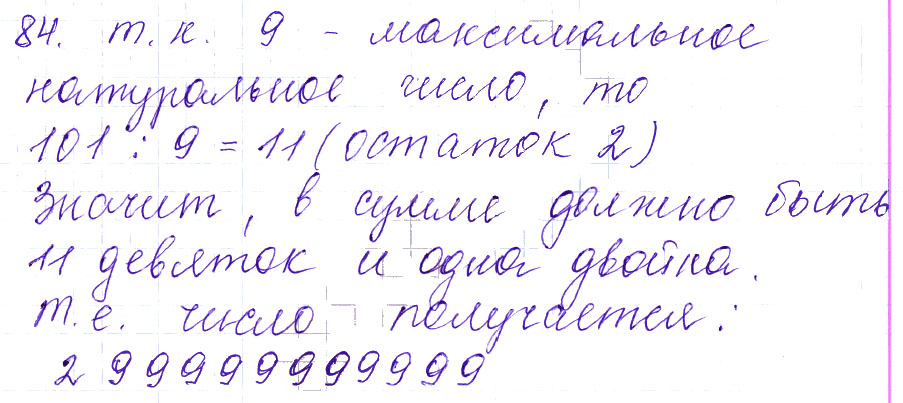 84. т.к. 9 - максимальное
натуральное число, то
101 : 9 = 11 (остаток 2)
Значит, в сумме должно быть
11 девяток и одна двойка.
т.е. число получается:
2 99999999999